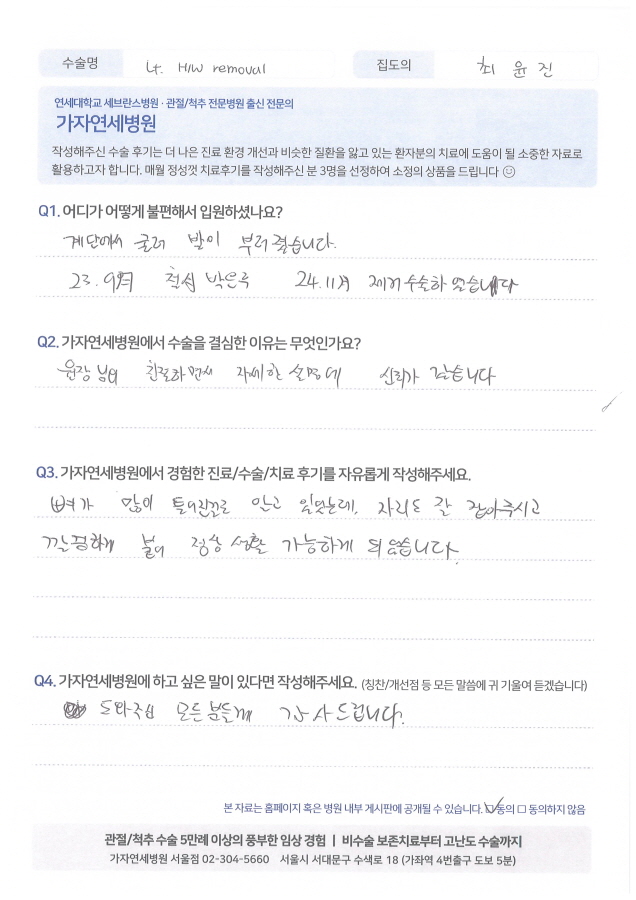 수술명 Lt. H/W removal 집도의 최윤진
연세대학교 세브란스병원 · 관절/척추 전문병원 출신 전문의
가자연세병원
작성해주신 수술 후기는 더 나은 진료 환경 개선과 비슷한 질환을 앓고 있는 환자분의 치료에 도움이 될 소중한 자료로
활용하고자 합니다. 매월 정성껏 치료후기를 작성해주신 분 3명을 선정하여 소정의 상품을 드립니다 ☺
Q1. 어디가 어떻게 불편해서 입원하셨나요?
계단에서 굴러 발이 부러졌습니다.
23. 9월 철심 박은후 24. 11月 제거수술하였습니다
Q2. 가자연세병원에서 수술을 결심한 이유는 무엇인가요?
원장님의 친절하면서 자세한 설명에 신뢰가 갔습니다
Q3. 가자연세병원에서 경험한 진료/수술/치료 후기를 자유롭게 작성해주세요.
뼈가 많이 틀어진걸로 안고 있었는데, 자리도 잘 잡아주시고
깔끔하게 붙어 정상 생활 가능하게 되었습니다.
Q4. 가자연세병원에 하고 싶은 말이 있다면 작성해주세요. (칭찬/개선점 등 모든 말씀에 귀 기울여 듣겠습니다)
도와주신 모든분들께 감사드립니다.
본 자료는 홈페이지 혹은 병원 내부 게시판에 공개될 수 있습니다. ☑ 동의 ☐ 동의하지 않음
관절/척추 수술 5만례 이상의 풍부한 임상 경험 | 비수술 보존치료부터 고난도 수술까지
가자연세병원 서울점 02-304-5660 서울시 서대문구 수색로 18 (가좌역 4번출구 도보 5분)